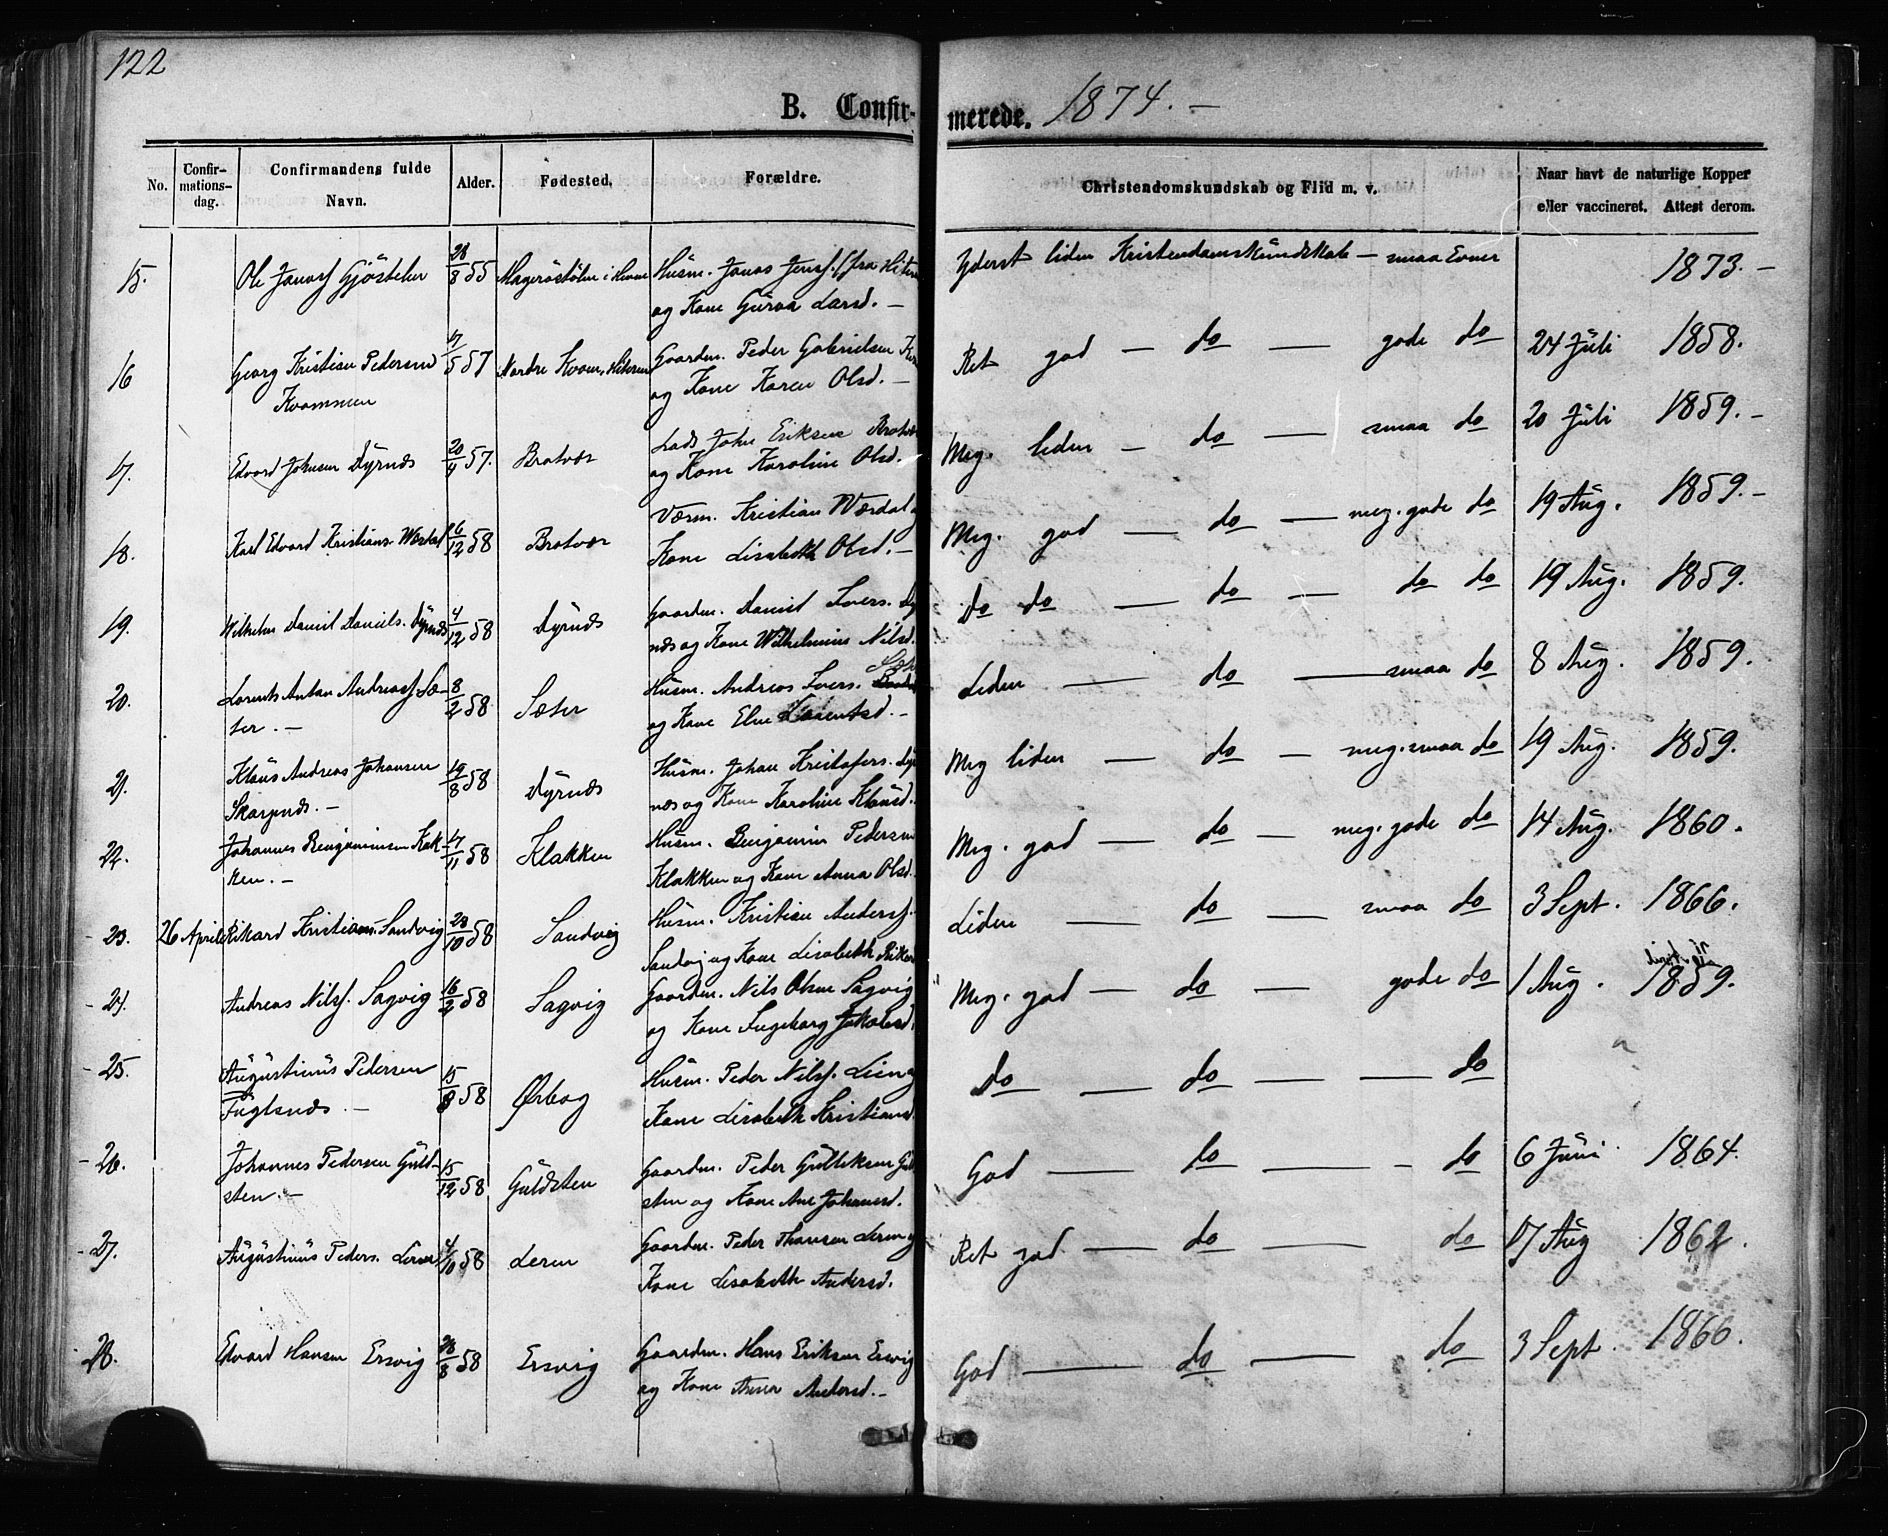 122
B. Confirmerede. 1874. -
No. Confirmationsdag. Confirmandens fulde Navn. Alder. Fødested. Forældre. Christendomskundskab og Flid m. v. Naar havt de naturlige Kopper eller vaccineret. Attest derom.
15. Ole Jonass Gjöstelen 28/8 55 Mageröstölen i Hevne Husm. Jonas Jenss. fra Hiteren
og Kone Gurva Larsd. - Yderst liden Kristendomskundskab - smaa Evner 1873. -
16 Georg Kristian Pedersen 17/5 57 Nordre Kvam, Hiteren Gaardm. Peder Gabrielsen
Kvammen og Kone Karen Olsd. - Ret god - do - gode do 24 Juli 1858.
17. Edvard Johnsen Dyrnæs 20/4 57. Brotvær Lods John Eriksen Brotvær
og Kone Karoline Olsd. Meg. liden - do - smaa do 20 Juli 1859. -
18. Karl Edvard Kristians. Wærdal 16/12 58 Brotvær Værm. Kristian Wærdal og
Kone Lisabeth Olsd. - Meg. god - do - meg. gode do 19 Aug. 1859. -
19. Wilhelm Daniel Daniels. Dyrnæs 4/12 58 Dyrnæs Gaardm. Daniel Ivers. Dyr
næs og Kone Wilhelmine Nilsd. Do do - do - do do 19 Aug. 1859.
20. Lorents Anton Andreass. Sæ- 8/2 58 Sæter Husm. Andreas Ivers. Sæt
ter. - og Kone Elen Lorentsd. - Liden - do - smaa do 8 Aug. 1859.
21. Klaus Andreas Johansen 19/8 58 Dyrnæs Husm. Johan Kristofers. Dyr
Skarpnæs. - næs og Kone Karoline Klausd. Meg liden - do - meg. smaa do 19 Aug. 1859.
22. Johannes Benjaminsen Klak- 17/11 58 Klakken Husm. Benjamin Pedersen
ken. - Klakken og Kone Anna Olsd. Meg. god - do - meg. gode do 14 Aug. 1860.
23. 26 April Rikard Kristians. Sandvig 23/10 58 Sandvig Husm. Kristian Anderss.
Sandvig og Kone Lisabeth Rikard Liden - do - smaa do 3 Sept. 1866.
24. Andreas Nilss. Sagvig 16/2 58 Sagvig Gaardm. Nils Olsen Sagvig
og Kone Ingeborg Jakobsd. Meg. god - do - gode do 1 Aug. 1859.
25. Augustinus Pedersen 15/8 58 Ørbog Husm. Peder Nilss. Lien og
Fuglsnæs. - Kone Lisabeth Kristiansd. do - do - - do
26. Johannes Pedersen Guld- 15/12 58 Guldsten Gaardm. Peder Gulliksen Guld
sten. - sten og Kone Ane Johansd. God - do - - do 6 Juni 1864.
27. Augustinus Peders. Leren 4/10 58 Leren Gaardm. Peder Thomsen Leren og
Kone Lisabeth Andersd. Ret god - do - do 17 Aug 1862.
28. Edvard Hansen Ersvig 28/8 58 Ersvig Gaardm. Hans Eriksen Ersvig
og Kone Anna Andersd. - God - do - do 3 Sept. 1866.